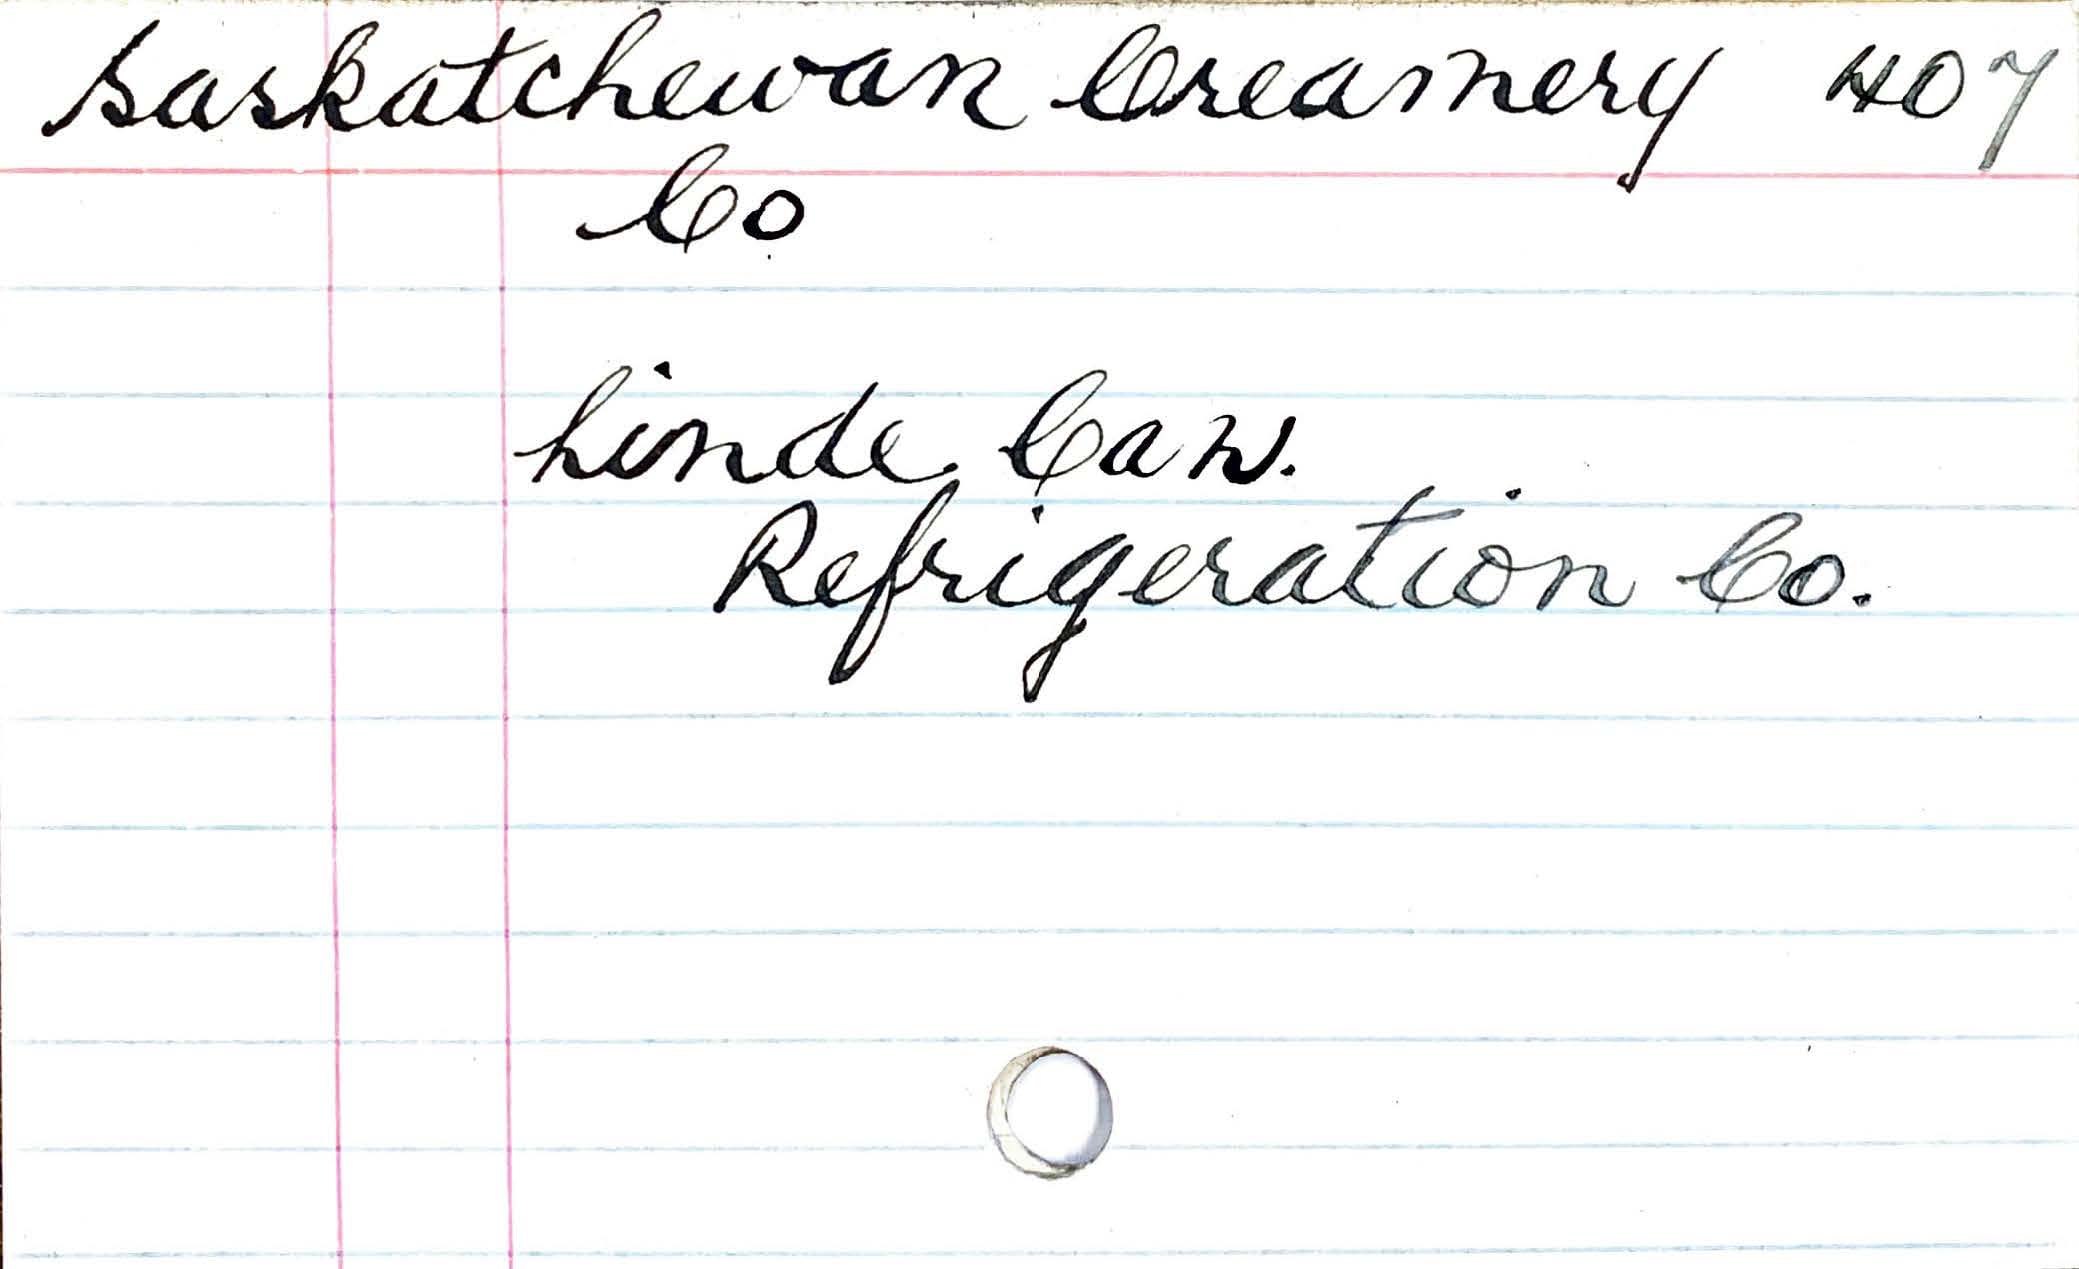 Saskatchewan Creamery 407
Co
Linde Can.
Refrigeration Co.